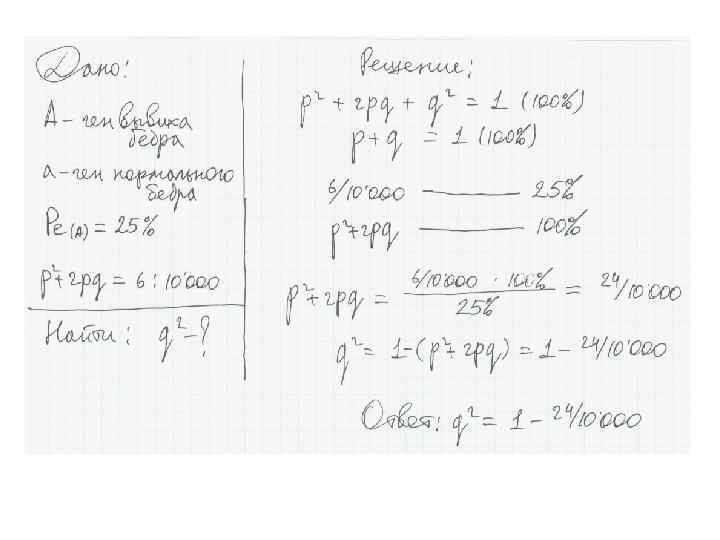 Дано:
А – ген вывиха
бедра
а – ген нормального
бедра
Pe(A) = 25%
p²+2pq = 6 : 10'000
Найти: q² – ?
Решение:
p² + 2pq + q² = 1 (100%)
p + q = 1 (100%)
6/10'000 —— 25%
p²+2pq —— 100%
p²+2pq = 6/10'000 · 100% / 25% = 24/10'000
q² = 1-(p²+2pq) = 1 – 24/10'000
Ответ: q² = 1 – 24/10'000